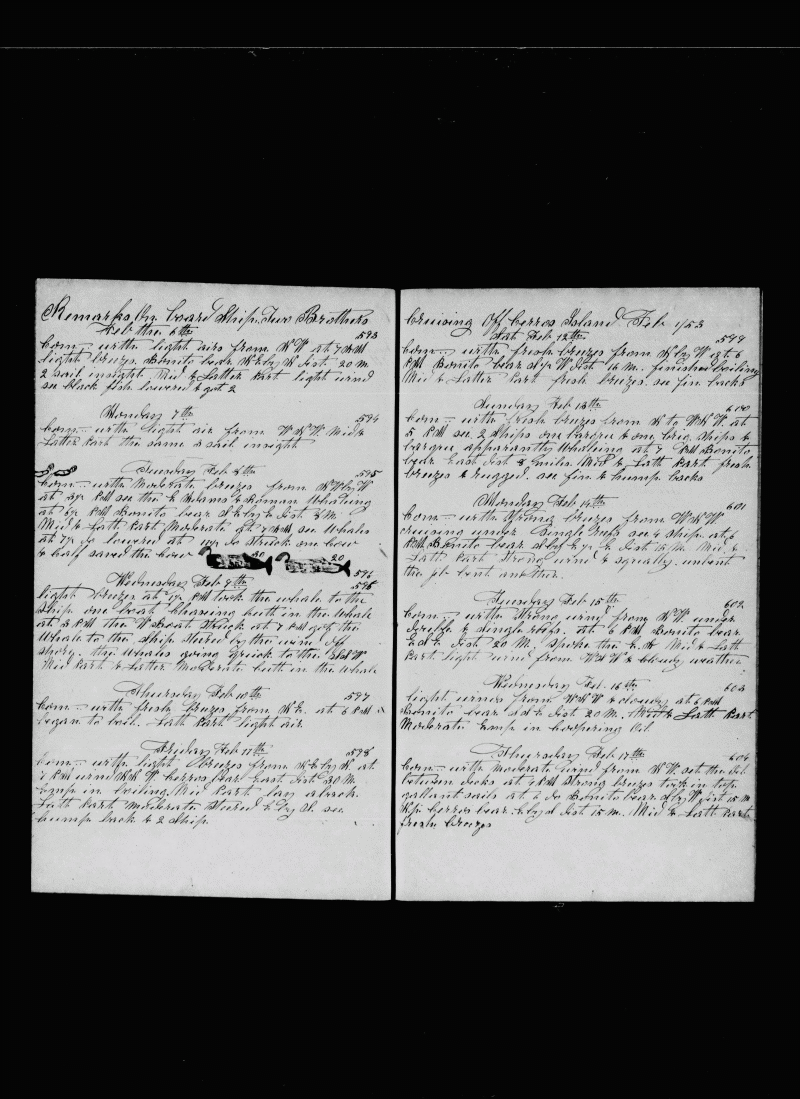 Remarks On board Ship Two Brothers
Feb the 6th
593
Com— with light airs from N W at 7 P M
light breeze. Bonito bear N E by N Dist 20 M
2 sail insight Mid & Latter Part light wind
see black fish lowered & got 2
Monday 7th
594
Com— with light air from W N W. Mid &
Latter Part the same 2 sail insight
Tuesday Feb 8th
595
Com— with Moderate breezes from N W by W
at PM see the & Roman Whaling
at PM Bonito bear E Dist 8 M.
Mid & Latt Part Moderate at 7 AM see Whales
at 7½ do lowered at do Struck one
& half saved the
80 20
596
Wednesday Feb 9th
light breezes at PM took the whale to the
Ship one boat chaseing cutt in the Whale
at 3 PM the W Boat Struck at 7 PM got the
Whale to the Ship
Shore. the Whales going quick to the
Mid Part & Latter Moderate cutt in the Whale
Thursday Feb 10th
597
Com— with fresh breezes from N E. at 6 PM
began to boil. Latt Part light air
Friday Feb 11th
598
Com— with light breezes from N E by N at
7 PM wind N N W Cerros bear East Dist 30 M
Emp in boiling Mid Part lay aback.
Latt Part Moderate Steered E by S. see
hump back & 2 Ship.
Cruising Off Cerros Island Feb 1853
Sat Feb 12th
599
Com— with fresh breezes from N by W at 6
PM Bonito bear W Dist 16 M. finished boiling
Mid & Latter Part fresh breezes. see fin backs
Sunday Feb 13th
600
Com— with fresh breezes from N to N N W. at
5 PM see 2 Ships one barque & one brig Ships &
barque apparantly Whaleing at 7 PM Bonito
bear East Dist 8 miles Mid & Latt Part fresh
breezes & rugged. see fin & hump backs
Monday Feb 14th
601
Com— with Strong breezes from W N W.
Cruising under Single reefs see 4 Ship. at 6
PM Bonito bear Dist 15 M. Mid &
Latt Part Strong wind & squally. unbent
the jib bent another
Tuesday Feb 15th
602
Com— with Strong wind from N W. under
Double & Single reefs. at 6 PM Bonito bear
Dist 20 M. Spoke the Mid & Latt
Part light wind from W N W & cloudy weather
Wednesday Feb. 16th
603
light winds from W N W & cloudy at 6 PM
Bonito bear Dist 20 M. Mid & Latt Part
Moderate Emp in Coopering Oil.
Thursday Feb 17th
604
Com— with Moderate wind from N W. set the
between decks at 4 PM Strong breezes took in top
gallant sails at 6 do Bonito bear Dist 15 M
Cerros bear Dist 15 M. Mid & Latt Part
fresh breezes